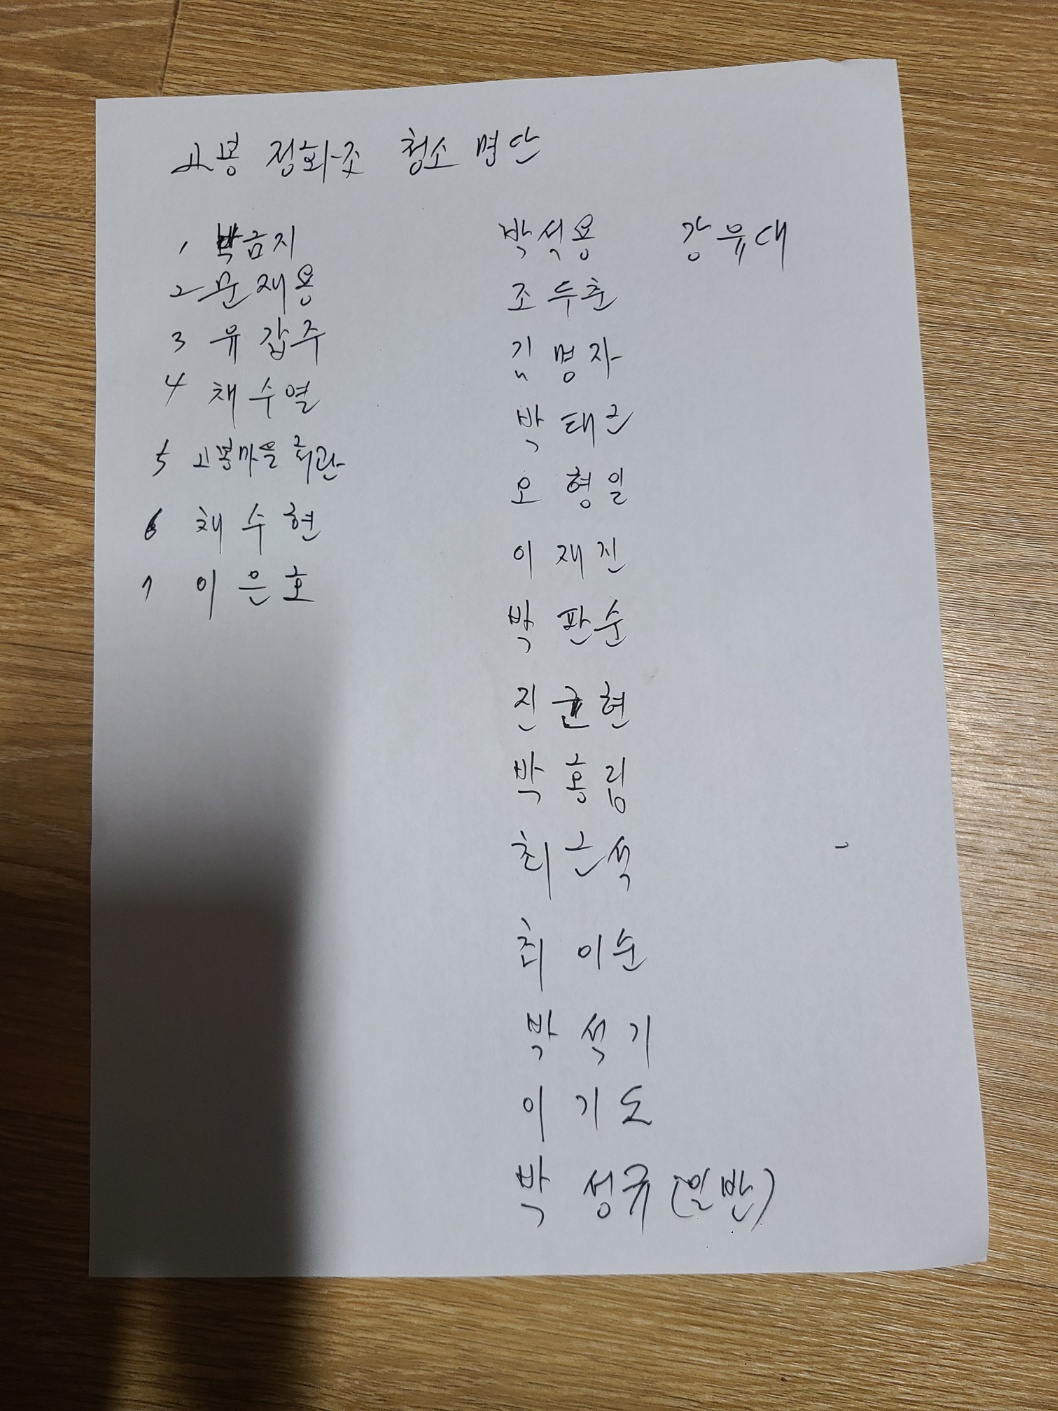 고봉 정화조 청소 명단
1 박금지
2 문재용
3 유갑주
4 채수열
5 고봉마을 회관
6 채수현
7 이은호
박석용
조두춘
김명자
박태근
오형일
이재진
박판순
진균현
박홍림
최근석
최이순
박석기
이기도
박성규(일반)
강유대